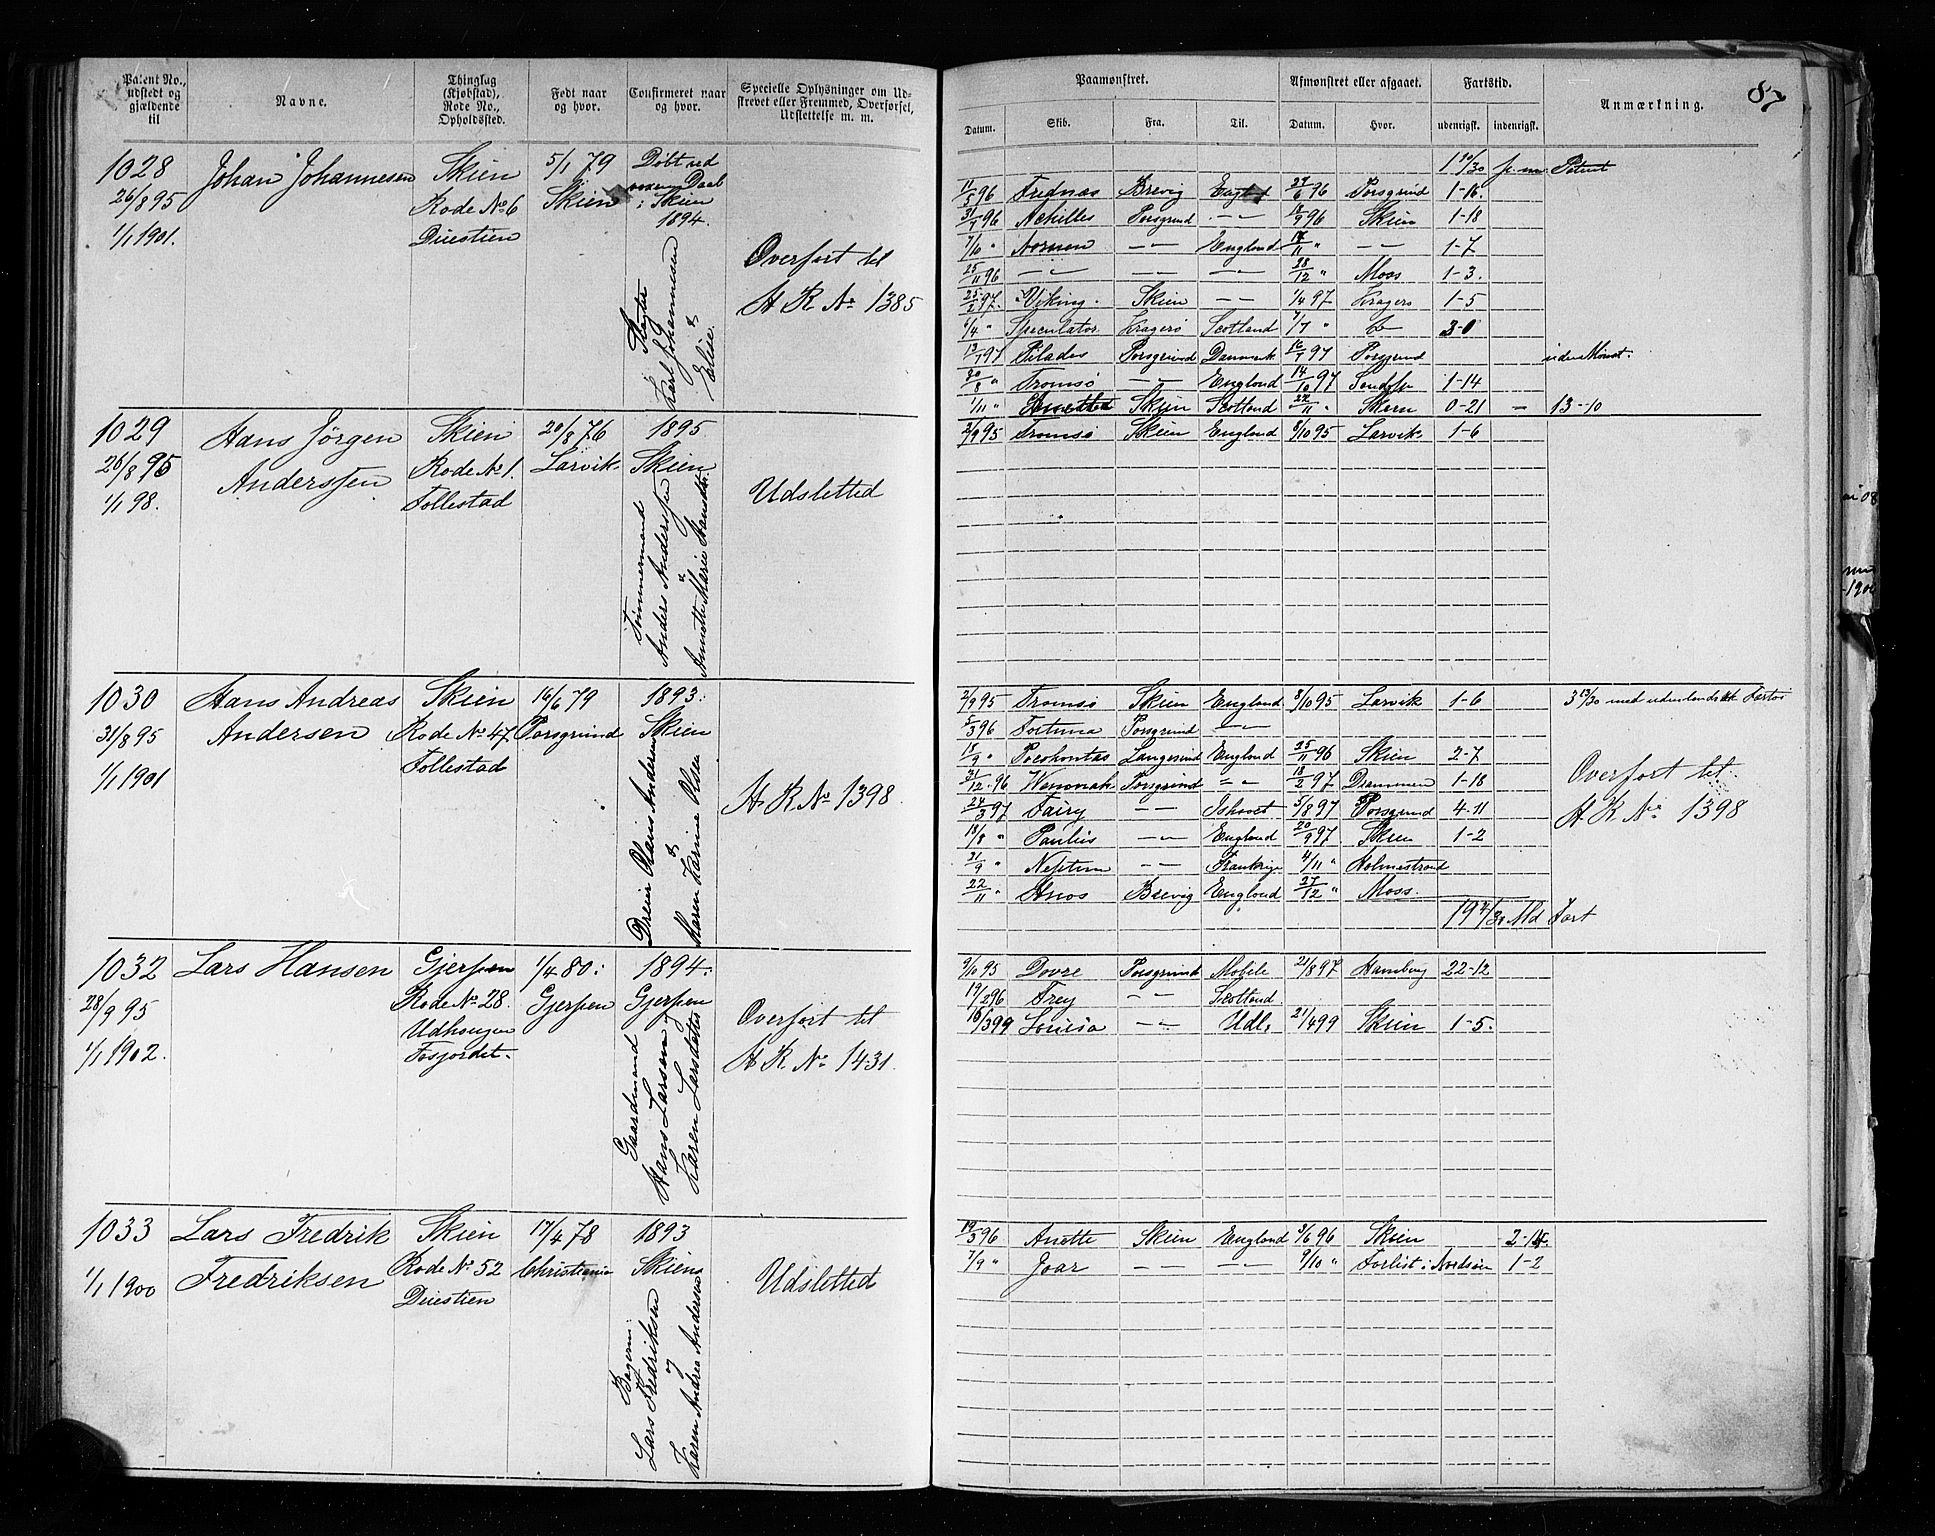 Patent No., udstedt og gjældende til
Navne.
Thinglag (Kjøbstad), Rode No., Opholdssted.
Født naar og hvor.
Confirmeret naar og hvor.
Specielle Oplysninger om Udskrevet eller Fremmed, Overførsel, Udslettelse m. m.
1028
26/8 95
1/1 1901.
Johan Johannesen
Skien
Rode No 6
Duestien
5/1 79
Skien
Døbt ved
Daab
i Skien
1894.
Karl Johannesen
&
Elise.
Overført til
H R No 1385
1029
26/8 95
1/1 98.
Hans Jörgen
Anderssen
Skien
Rode No 1.
Follestad
20/8 76
Larvik
1895
Skien
Tømmermand
Anders Anderssen
&
Annethe Marie Hansdtr.
Udsletted
1030
31/8 95
1/1 1901
Hans Andreas
Andersen
Skien
Rode No 47
Follestad
16/6 79
Porsgrund
1893.
Skien
Dreier Olaus Andersen
&
Karen Karine Olsen
H R No 1398.
1032
28/9 95
1/1 1902.
Lars Hansen
Gjerpen
Rode No 28.
Udhaugen
Fosjordet.
1/4 80.
Gjerpen
1894.
Gjerpen
Gaardmand
Hans Larsen
&
Karen Larsdatter
Overført til
H R No 1431.
1033
1/1 1900
Lars Fredrik
Fredriksen
Skien
Rode No 52
Duestien
17/4 78
Christiania
1893
Skien
Bagerm.
Lars Fredriksen
&
Karen Andrea Andersen
Udslettet
87
Paamønstret.
Afmønstret eller afgaaet.
Fartstid.
Anmærkning.
Datum.
Skib.
Fra.
Til.
Datum.
Hvor.
udenrigsk.
indenrigsk.
Patent
11/5 96 Frednæs Brevig England 6 96 Porsgrund 1-16.
31/7 96 Achilles Porsgrund -"- 18/9 96 Skien 1-18
7/10 " Nornen -"- England 14/11 " -"- 1-7
25/11 96 -"- -"- -"- 28/12 " Moss 1-3.
25/2 97. Viking. Skien -"- 1/4 97 Kragerø 1-5
/4 " Speculator Kragerø Scotland 7/7 " 3-0
97 Pilades Porsgrund Danmark 16/7 97 Porsgrund uden Mønst.
20/8 " Tromsö -"- England 14/10 97 1-14
1/11 " Skien Scotland 22/11 " Skien 0-21 - 13-10
2/9 95 Tromsö Skien England 8/10 95 Larvik 1-6
2/9 95 Tromsö Skien England 8/10 95 Larvik 1-6 3 13/30 med udenlandsk Fartøi
5/3 96 Fortuna Porsgrund -"-
18/9 " Pocohontas Langesund England 25/11 96 Skien 2-7
21/12 96 Wenonah Porsgrund -"- 18/2 97 Drammen 1-18
24/3 97 Fairy -"- Ishavet 5/8 97 Porsgrund 4-11
18/8 " Paulus -"- England 20/9 97. Skien 1-2
21/9 " Neptun -"- Frankrige 4/11 " Holmestrand
22/11 " Amos Brevig England 27/12 " Moss.
Overført til
H R No 1398
Md Fart
9/10 95 Dovre Porsgrund Mobile 21/8 97 Hamburg 22-12
19/2 96 Frey -"- Scotland
16/3 99 Louisa -"- Udl. 21/4 99 Skien 1-5.
19/3 96 Anette Skien England 3/6 96 Skien 2-14.
7/9 " Joar -"- -"- 9/10 " Forlist i Nordsøen 1-2